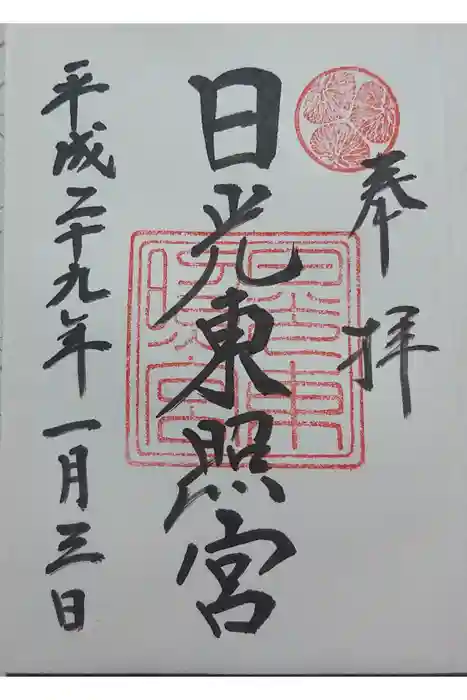 奉拝
日光東照宮
平成二十九年一月三日